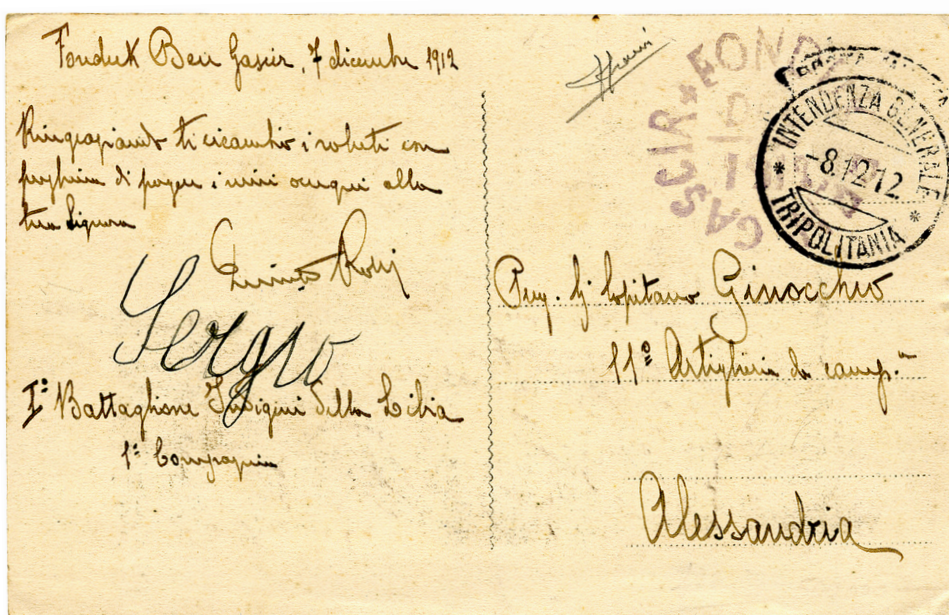 Fonduk Ben Gascir, 7 dicembre 1912
Ringraziando ti ricambio i saluti con
preghiera di porgere i miei ossequi alla
tua Signora
Rossi
Sergio
I° Battaglione Indigeni della Libia
1ª Compagnia
FOND
GASCIR
INTENDENZA GENERALE
-8.12.12
TRIPOLITANIA
Capitano Ginocchio
11° Artiglieria da camp.
Alessandria